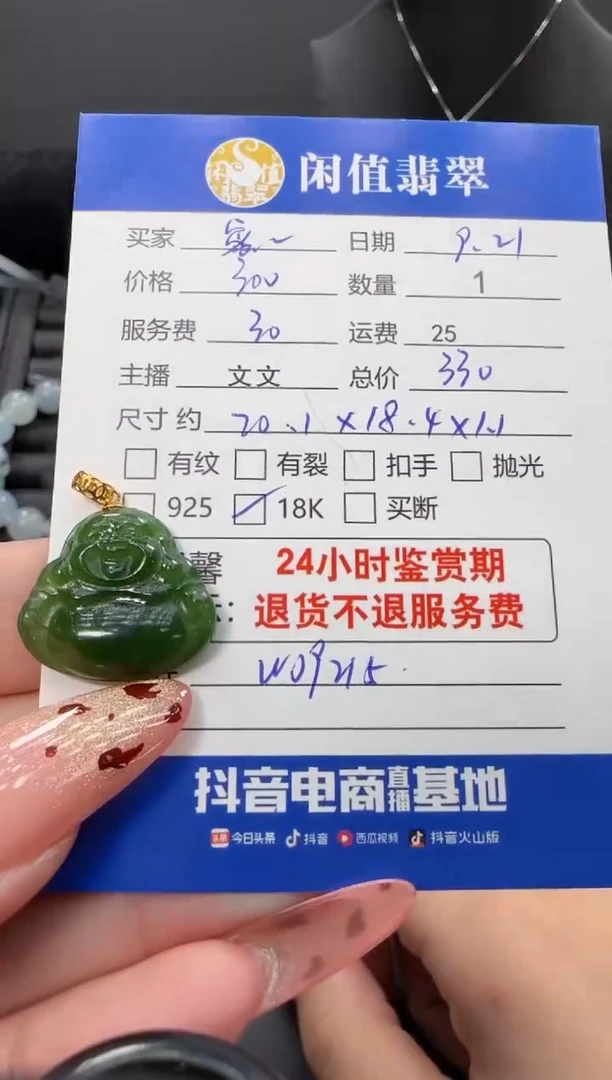 闲值翡翠
闲值翡翠
买家 日期 9.21
价格 300 数量 1
服务费 30 运费 25
主播 文文 总价 330
尺寸 约 20.1×18.4×1.1
有纹 有裂 扣手 抛光
925 18K 买断
馨 24小时鉴赏期
示: 退货不退服务费
W09215
抖音电商直播基地
头条 今日头条 抖音 西瓜视频 抖音火山版